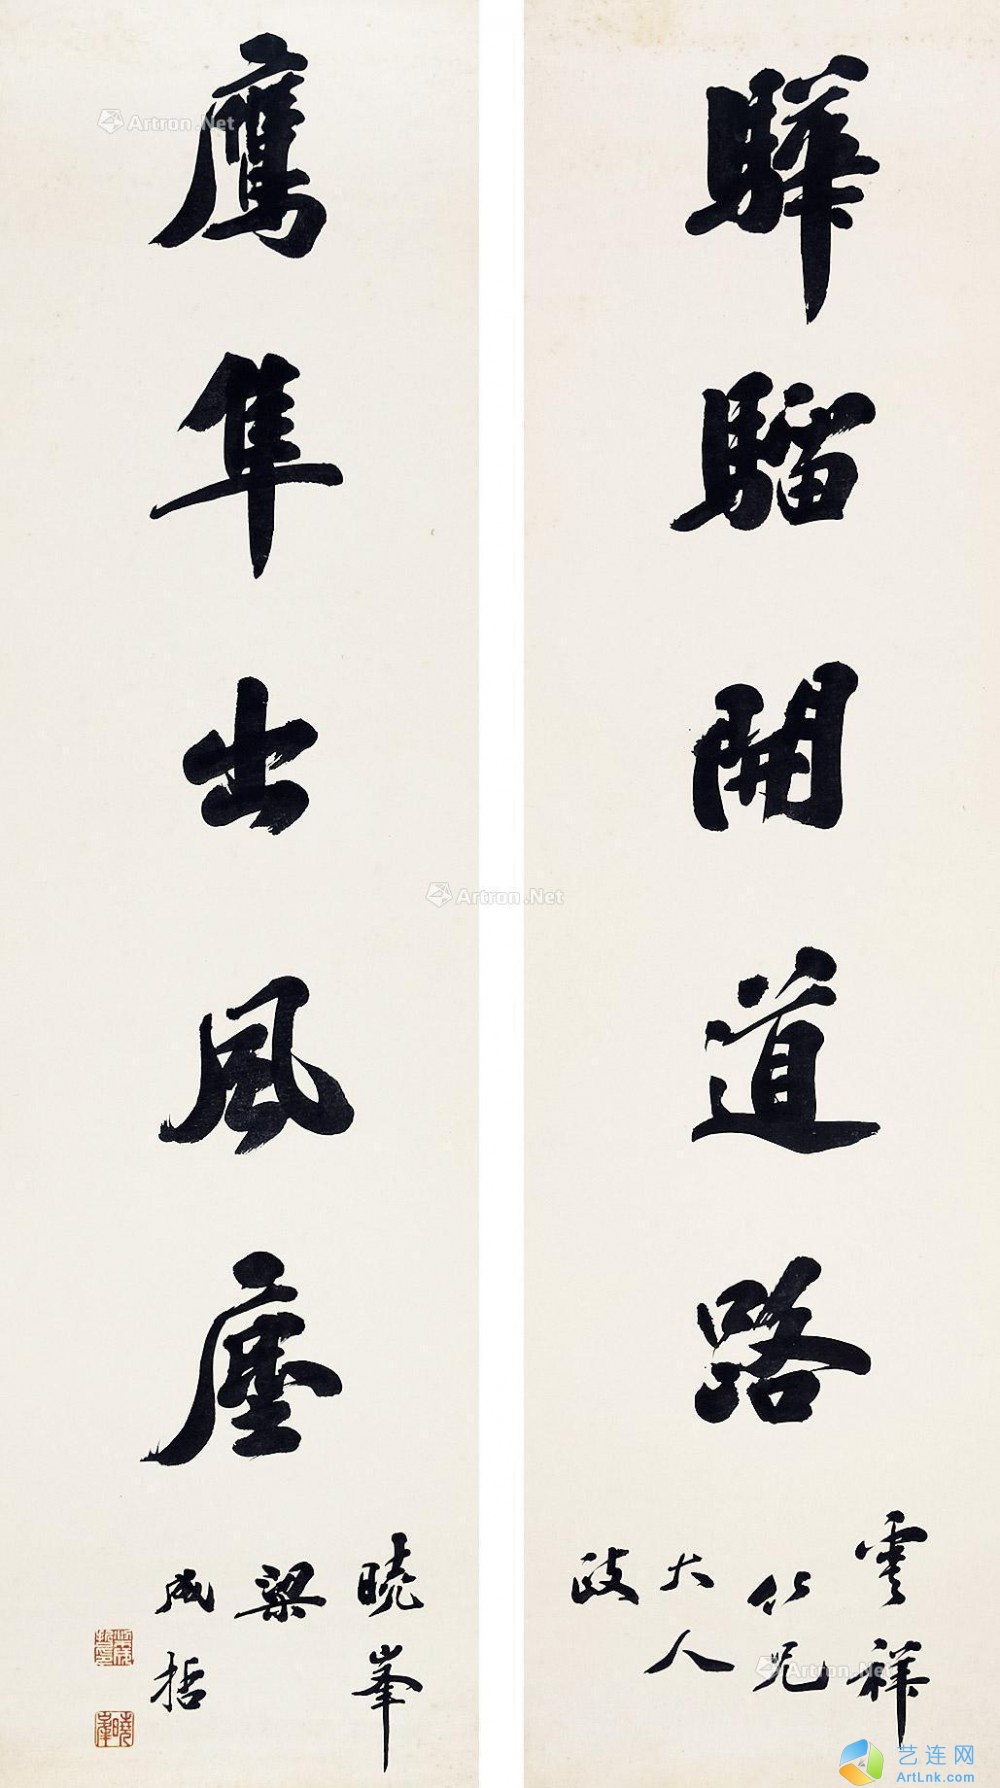 驊騮開道路
雲祥
仁兄
大人
政
鷹隼出風塵
曉峯
梁
成哲
曉峯
Artron.Net
Artron.Net
Artron.Net
艺连网
ArtLnk.com